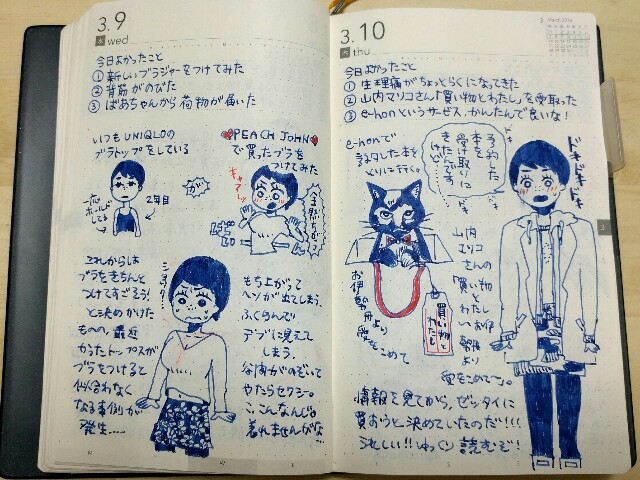 3.9
水 wed
今日よかったこと
① 新しいブラジャーをつけてみた
② 背筋がのびた
③ ばあちゃんから荷物が届いた
いつもUNIQLOの
ブラトップをしている
一応
ホールド
してる
2年目
が
PEACH JOHN
で買ったブラを
つけてみた
キャァッ
全然ちがう
これからは
ブラをきちんと
つけてすごそう!
と決めかけた
ものの、最近
かうたトップスが
ブラをつけると
似合わなく
なる事例が
発生……
もち上がって
ヘソが出てしまう、
ふくらんで
デブに見えて
しまう、
谷間がのぞいて
やたらセクシー。
こ、こんなんじゃ
着れませんがな…
3.10
木 thu
3 March 2016
今日よかったこと
① 生理痛がちょっとらくになってきた
② 山内マリコさん「買い物とわたし」を受取った
③ e-honというサービス、かんたんで良いな!
e-honで
註文した本を
とりに行く。
予約した
本を
受け取りに
きたんです
けど…
ドキ
ドキ
ドキドキドキ
お伊勢丹より
愛をこめて
買い物と
わたし
山内
マリコ
さんの
「買い物
と
わたし
〜お伊
勢丹
より
愛をこめて〜」。
情報を見てから、ゼッタイに
買おうと決めていたのだ!!!
うれしい!!ゆっくり読むぞ!